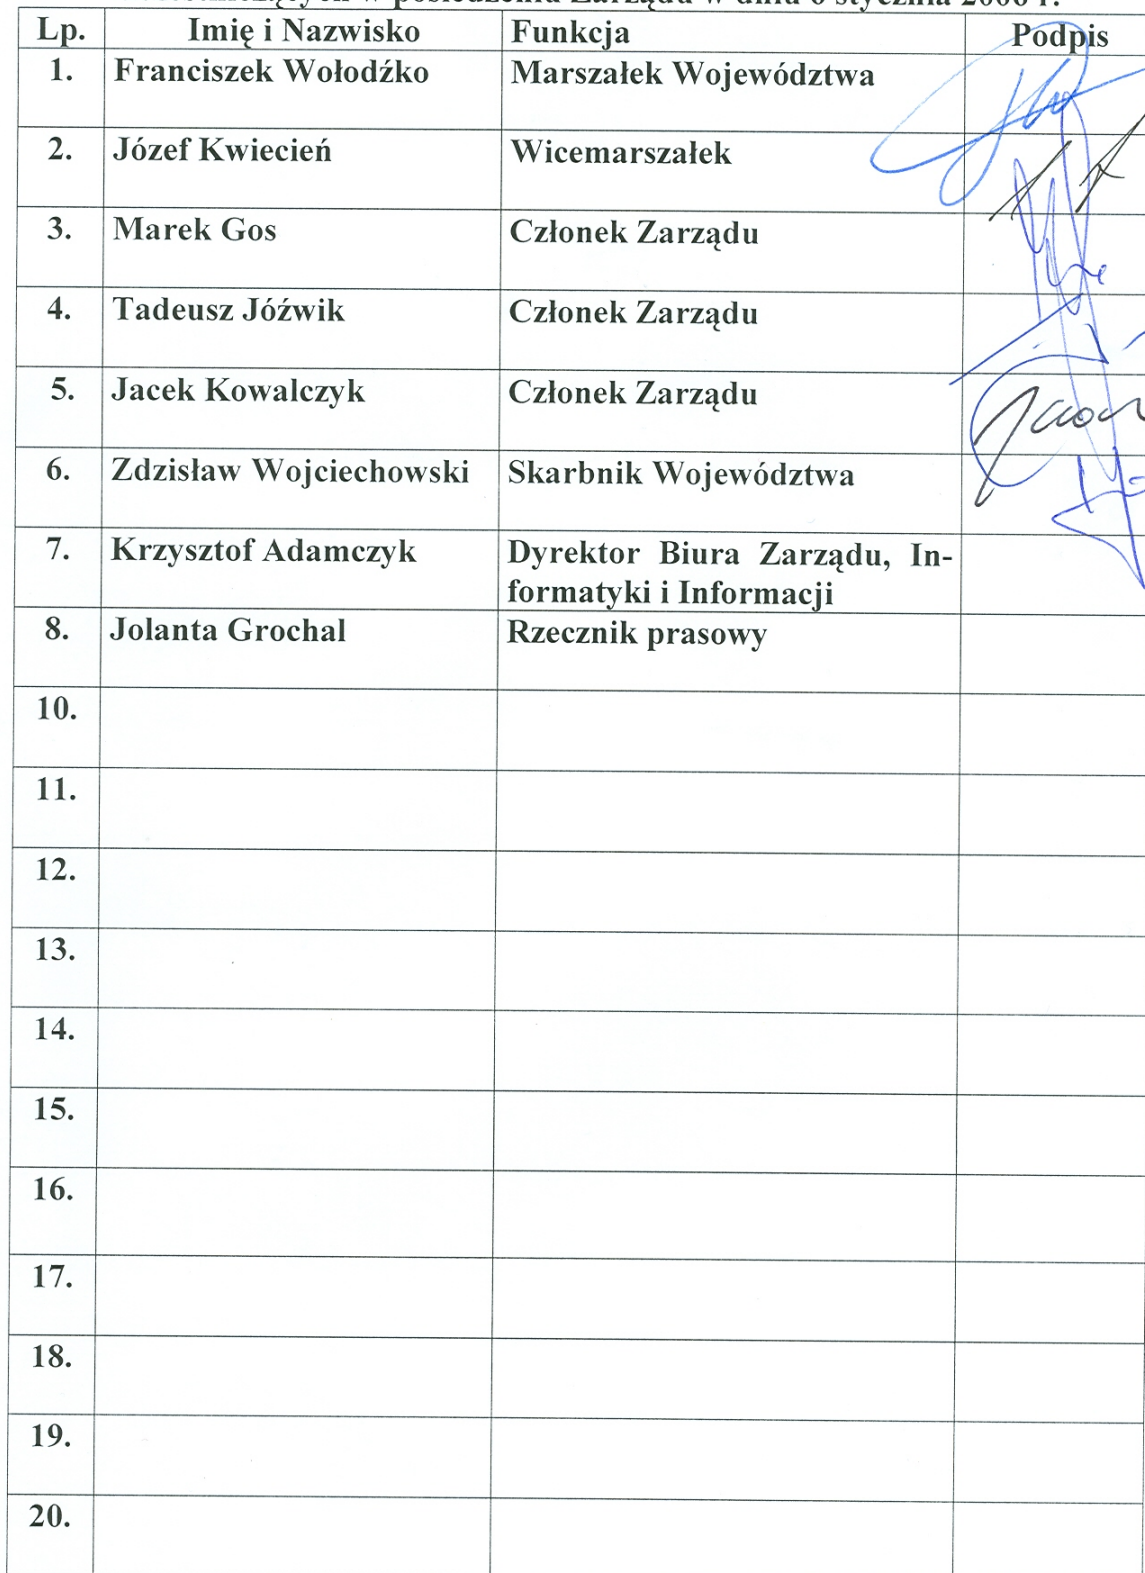 w posiedzeniu Zarządu w dniu 6 stycznia 2006 r.
Lp. Imię i Nazwisko Funkcja Podpis
1. Franciszek Wołodźko Marszałek Województwa
2. Józef Kwiecień Wicemarszałek
3. Marek Gos Członek Zarządu
4. Tadeusz Jóźwik Członek Zarządu
5. Jacek Kowalczyk Członek Zarządu
6. Zdzisław Wojciechowski Skarbnik Województwa
7. Krzysztof Adamczyk Dyrektor Biura Zarządu, In-
formatyki i Informacji
8. Jolanta Grochal Rzecznik prasowy
10.
11.
12.
13.
14.
15.
16.
17.
18.
19.
20.